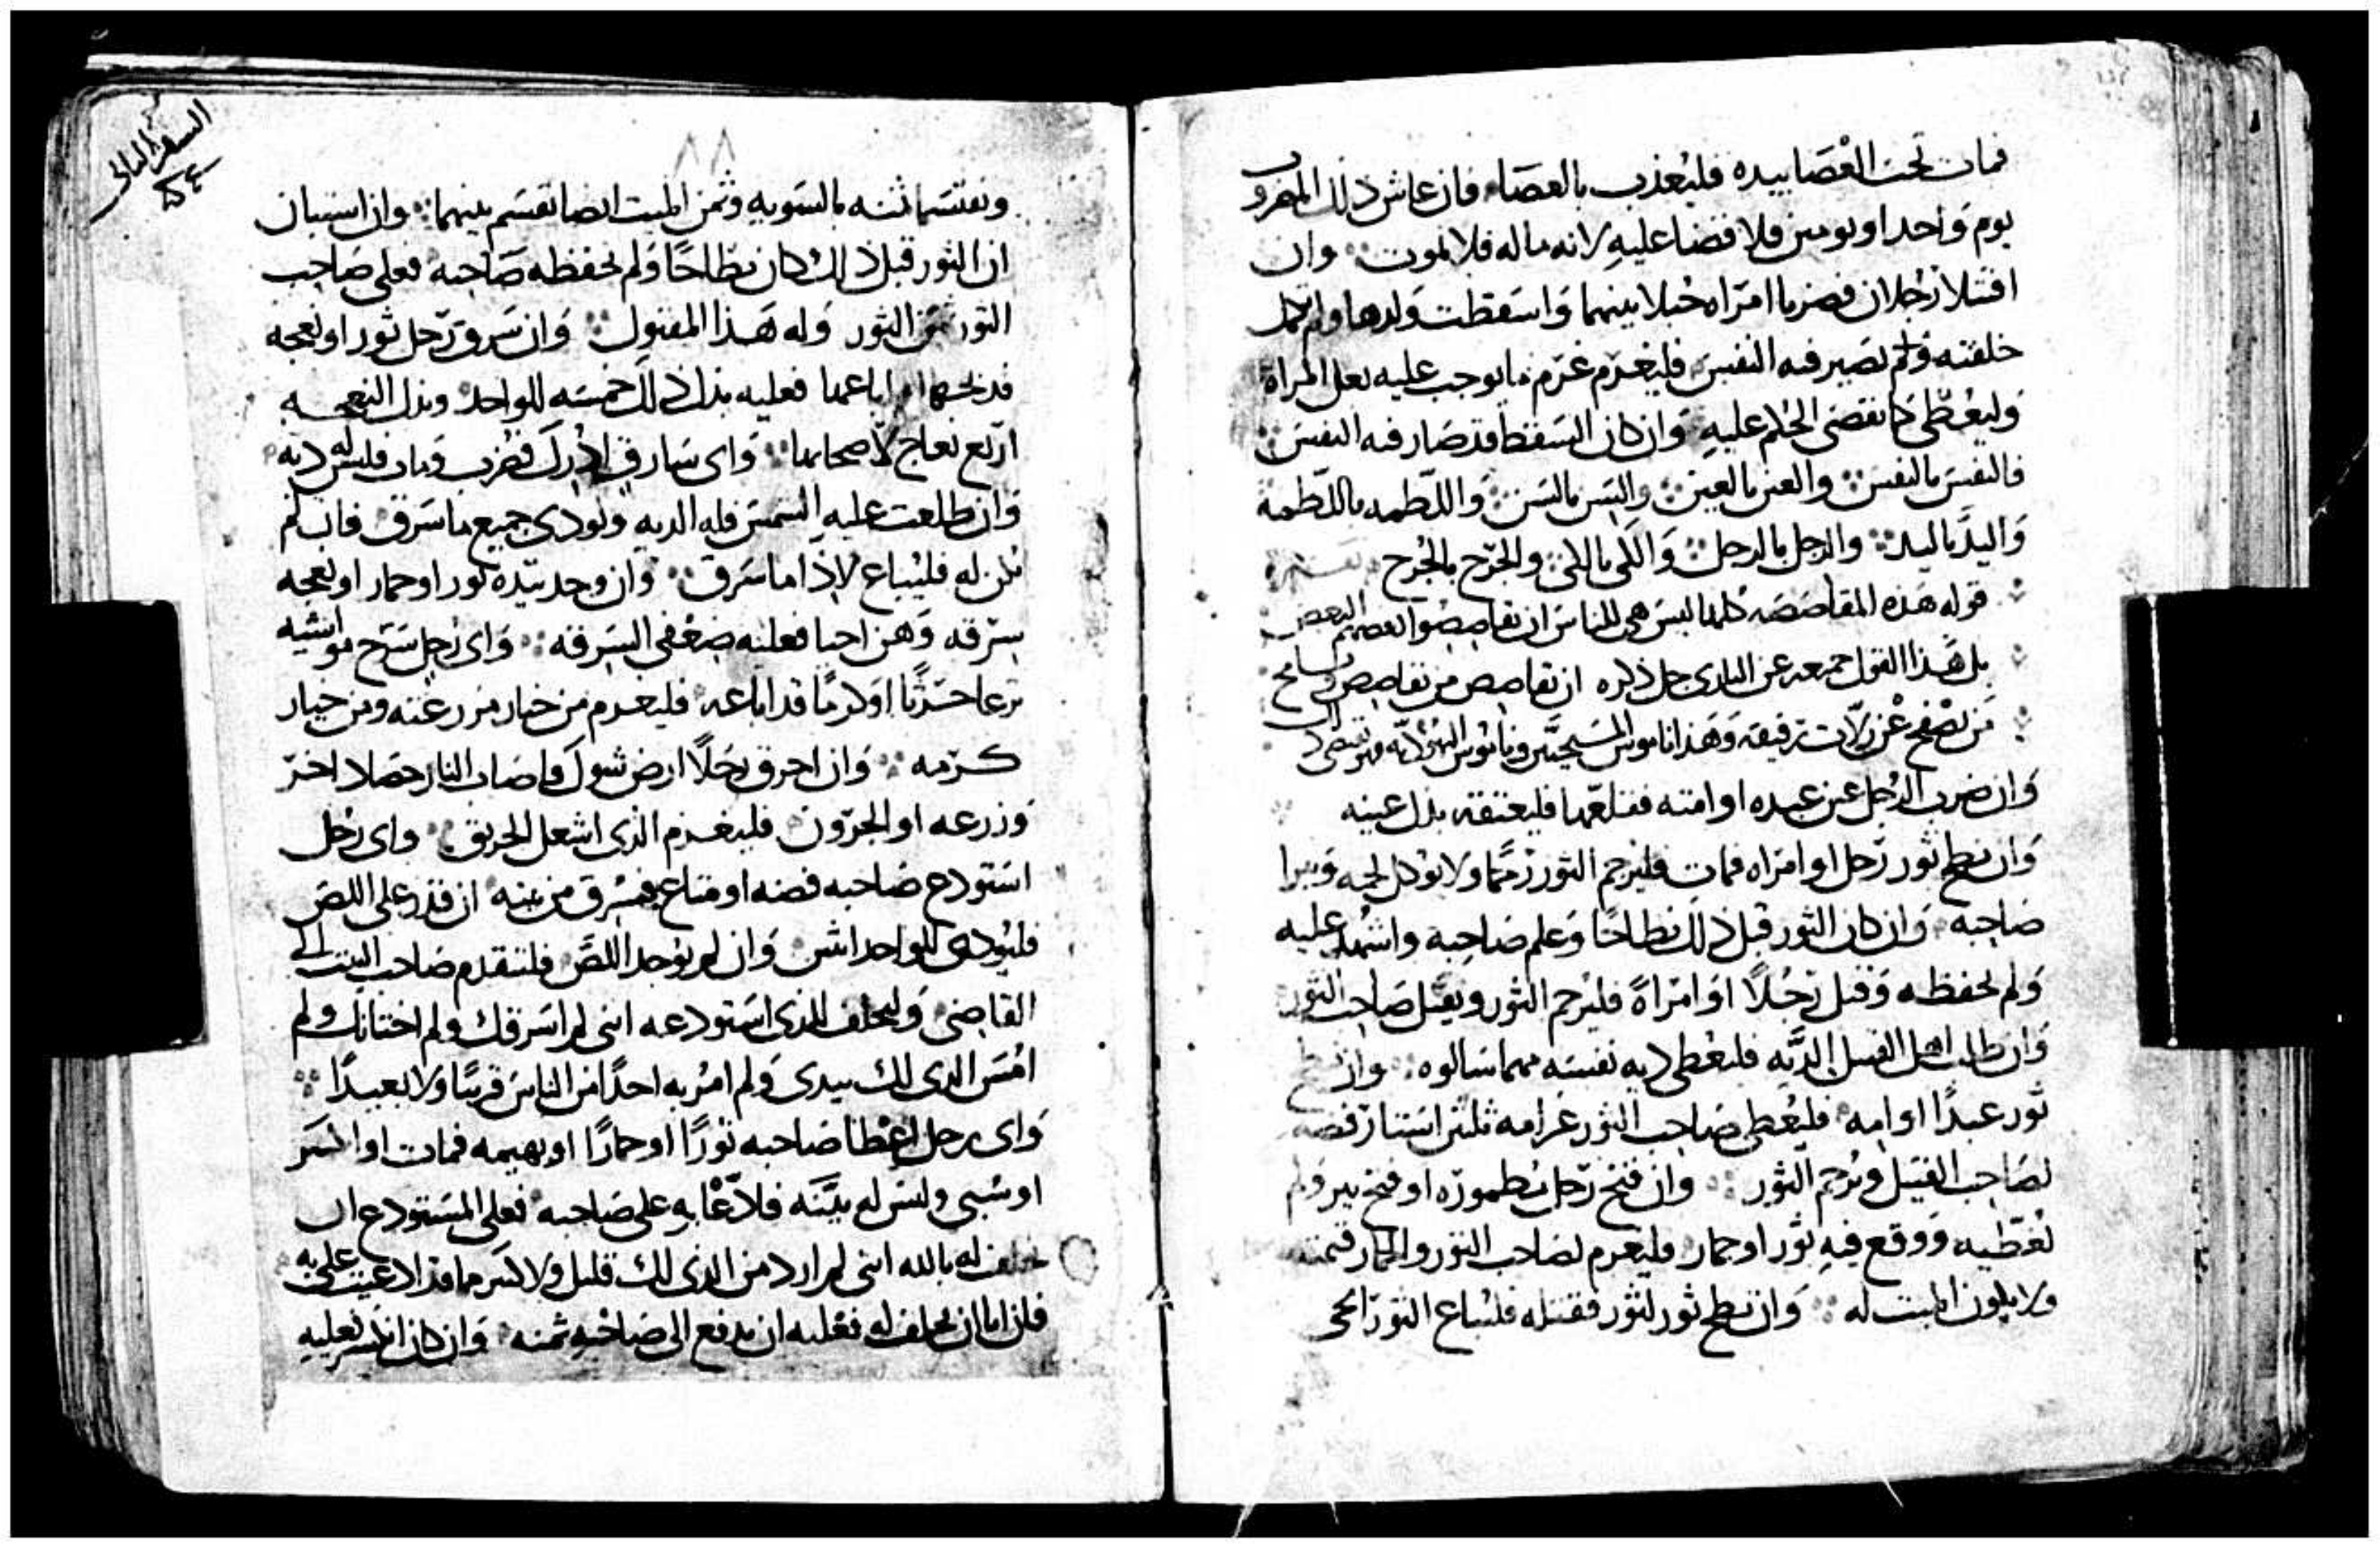 فمات تحت العصا بيده فليعذب بالعصا فان عاش ذلك المضروب
يوم واحد او يومين فلا قضا عليه لانه ماله فلا يموت وان
اقتتلا رجلان فضربا امراه حبلا بينهما واسقطت ولدها ولم تكمل
خلقته ولم تصير فيه النفس فليغرم غرم ما يوجب عليه بعل المراة
وليعطى كما تقضى الحكم عليه وان كان السقط قد صار فيه النفس
فالنفس بالنفس والعين بالعين والسن بالسن واللطمه باللطمة
واليد باليد والرجل بالرجل والكى بالكى والجرح بالجرح
قوله هذه المقاصصه كلها ليس هى للناس ان تقاصصوا بعضهم البعض
بل هذا القول جميعه عن البارى جل ذكره ان تقاصص من تقاصص وتسامح
من يصفح عن زلات رفيقه وهذا ناموس المسيحيين وناموس اليهوديه
وان ضرب الرجل عين عبده او امته فقلعها فليعتقه بدل عينه
وان نطح ثور رجل او امراه فمات فليرجم الثور رجما ولا يوكل لحمه ويبرا
صاحبه وان كان الثور قبل ذلك نطاحا وعلم صاحبه واشهد عليه
ولم يحفظه وقتل رجلا او امراة فليرجم الثور ويقتل صاحب الثور
وان طلب اهل القتيل الديه فليعطى ديه نفسه مهما سالوه وان نطح
ثور عبدا او امه فليعطى صاحب الثور غرامه ثلثين استار فضه
لصاحب القتيل ويرجم الثور وان فتح رجل مطموره او فتح بير ولم
يغطيه ووقع فيه ثور او حمار فليغرم لصاحب الثور والحمار قيمته
ولا يكون الميت له وان نطح ثور لثور فقتله فليباع الثور الحى
السفر الثانى
٨٨
ويقتسما ثمنه بالسويه وثمن الميت ايضا تقسم بينهما وان استبان
ان الثور قبل ذلك كان نطاحا ولم يحفظه صاحبه فعلى صاحب
الثور ثمن الثور وله هذا المقتول وان سرق رجل ثور او نعجه
فذبحها او اباعها فعليه بدل ذلك خمسه للواحد وبدل النعجه
اربع نعاج لاصحابها واى سارق ادرك فضرب ومات فليس له ديه
وان طلعت عليه الشمس فله الديه ويودى جميع ما سرق فان لم
يكن له فليباع لاذا ما سرق وان وجد بيده ثور او حمار او نعجه
سرقه وهن احيا فعليه ضعفى السرقه واى رجل سرح مواشيه
ترعا حرثا او كرما قد اباعه فليغرم من خيار مزرعته ومن خيار
كرمه وان احرق رجلا ارض شوك فاصاب النار حصاد اخر
وزرعه او الجرون فليغرم الذى اشعل الحريق واى رجل
استودع صاحبه فضه او متاع فسرق من بيته ان قدر على اللص
فليودى للواحد اثنين وان لم يوجد اللص فليتقدم صاحب البيت الى
القاضى وليحلف للذى استودعه انى لم اسرقك ولم اختانك ولم
امس الذى لك بيدى ولم امر به احدا من الناس قريبا ولا بعيدا
واى رجل اعطا صاحبه ثورا او حمارا او بهيمه فمات او انكسر
او سبى وليس له بينه فلا دعا به على صاحبه فعلى المستودع ان
يحلف له بالله انى لم ارد من الذى لك قليل ولا كثير مما قد ادعيت على به
فان ابا ان يحلف له فعليه ان يدفع الى صاحبه ثمنه وان كان